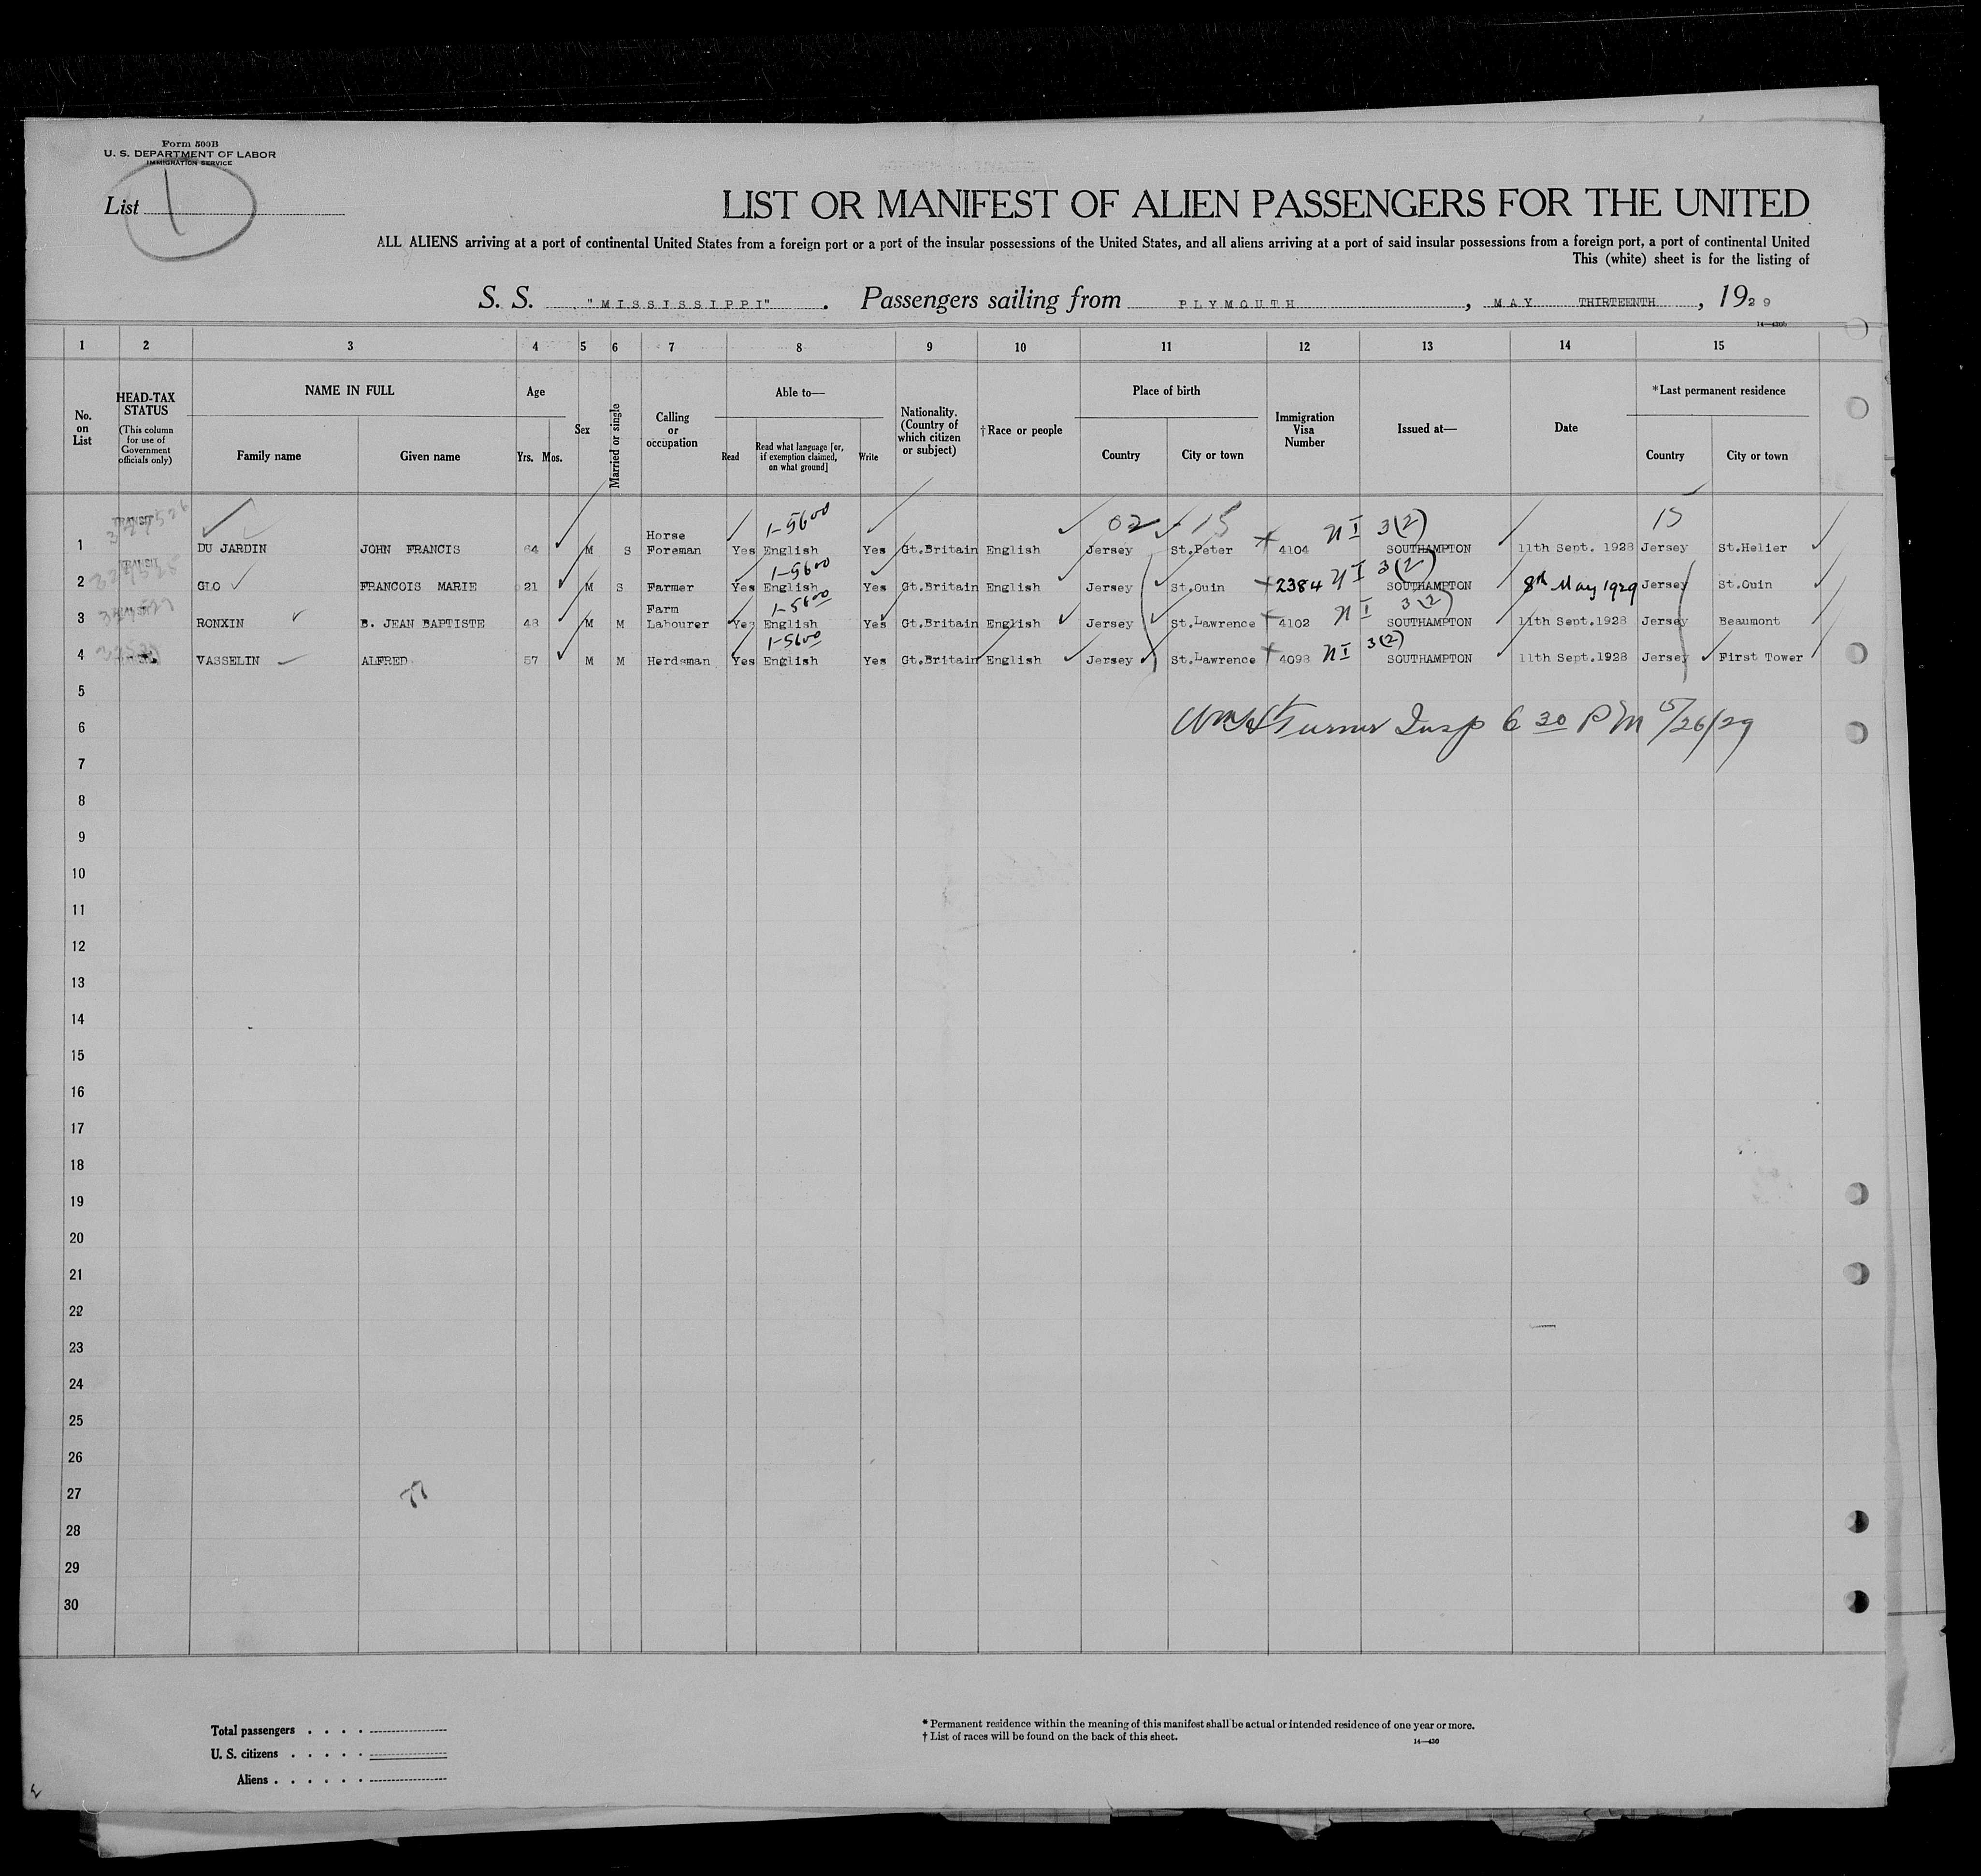 Form 500B
U. S. DEPARTMENT OF LABOR
IMMIGRATION SERVICE
List 1
LIST OR MANIFEST OF ALIEN PASSENGERS FOR THE UNITED
ALL ALIENS arriving at a port of continental United States from a foreign port or a port of the insular possessions of the United States, and all aliens arriving at a port of said insular possessions from a foreign port, a port of continental United
This (white) sheet is for the listing of
S. S. "MISSISSIPPI". Passengers sailing from PLYMOUTH, MAY THIRTEENTH, 1929
14—430b
1 2 3 4 5 6 7 8 9 10 11 12 13 14 15
No. on List
HEAD-TAX STATUS
(This column for use of Government officials only)
NAME IN FULL
Family name
Given name
Age
Yrs. Mos.
Sex
Married or single
Calling or occupation
Able to—
Read
Read what language [or, if exemption claimed, on what ground]
Write
Nationality. (Country of which citizen or subject)
†Race or people
Place of birth
Country
City or town
Immigration Visa Number
Issued at—
Date
*Last permanent residence
Country
City or town
TRANSIT 1-5600 02 15 NI 3(2) 15
1 DU JARDIN JOHN FRANCIS 64 M S Horse Foreman Yes English Yes Gt.Britain English Jersey St.Peter 4104 SOUTHAMPTON 11th Sept. 1928 Jersey St.Helier
TRANSIT 1-5600 NI 3(2)
2 GLO FRANCOIS MARIE 21 M S Farmer Yes English Yes Gt.Britain English Jersey St.Ouin 2384 SOUTHAMPTON 8th May 1929 Jersey St.Ouin
1-5600 NI 3(2)
3 RONXIN B. JEAN BAPTISTE 48 M M Farm Labourer Yes English Yes Gt.Britain English Jersey St.Lawrence 4102 SOUTHAMPTON 11th Sept.1928 Jersey Beaumont
1-5600 NI 3(2)
4 VASSELIN ALFRED 57 M M Herdsman Yes English Yes Gt.Britain English Jersey St.Lawrence 4098 SOUTHAMPTON 11th Sept.1928 Jersey First Tower
5
6 Turner Insp 6 30 PM 5/26/29
7
8
9
10
11
12
13
14
15
16
17
18
19
20
21
22
23
24
25
26
27
28
29
30
Total passengers
U. S. citizens
Aliens
* Permanent residence within the meaning of this manifest shall be actual or intended residence of one year or more.
† List of races will be found on the back of this sheet.
14—430